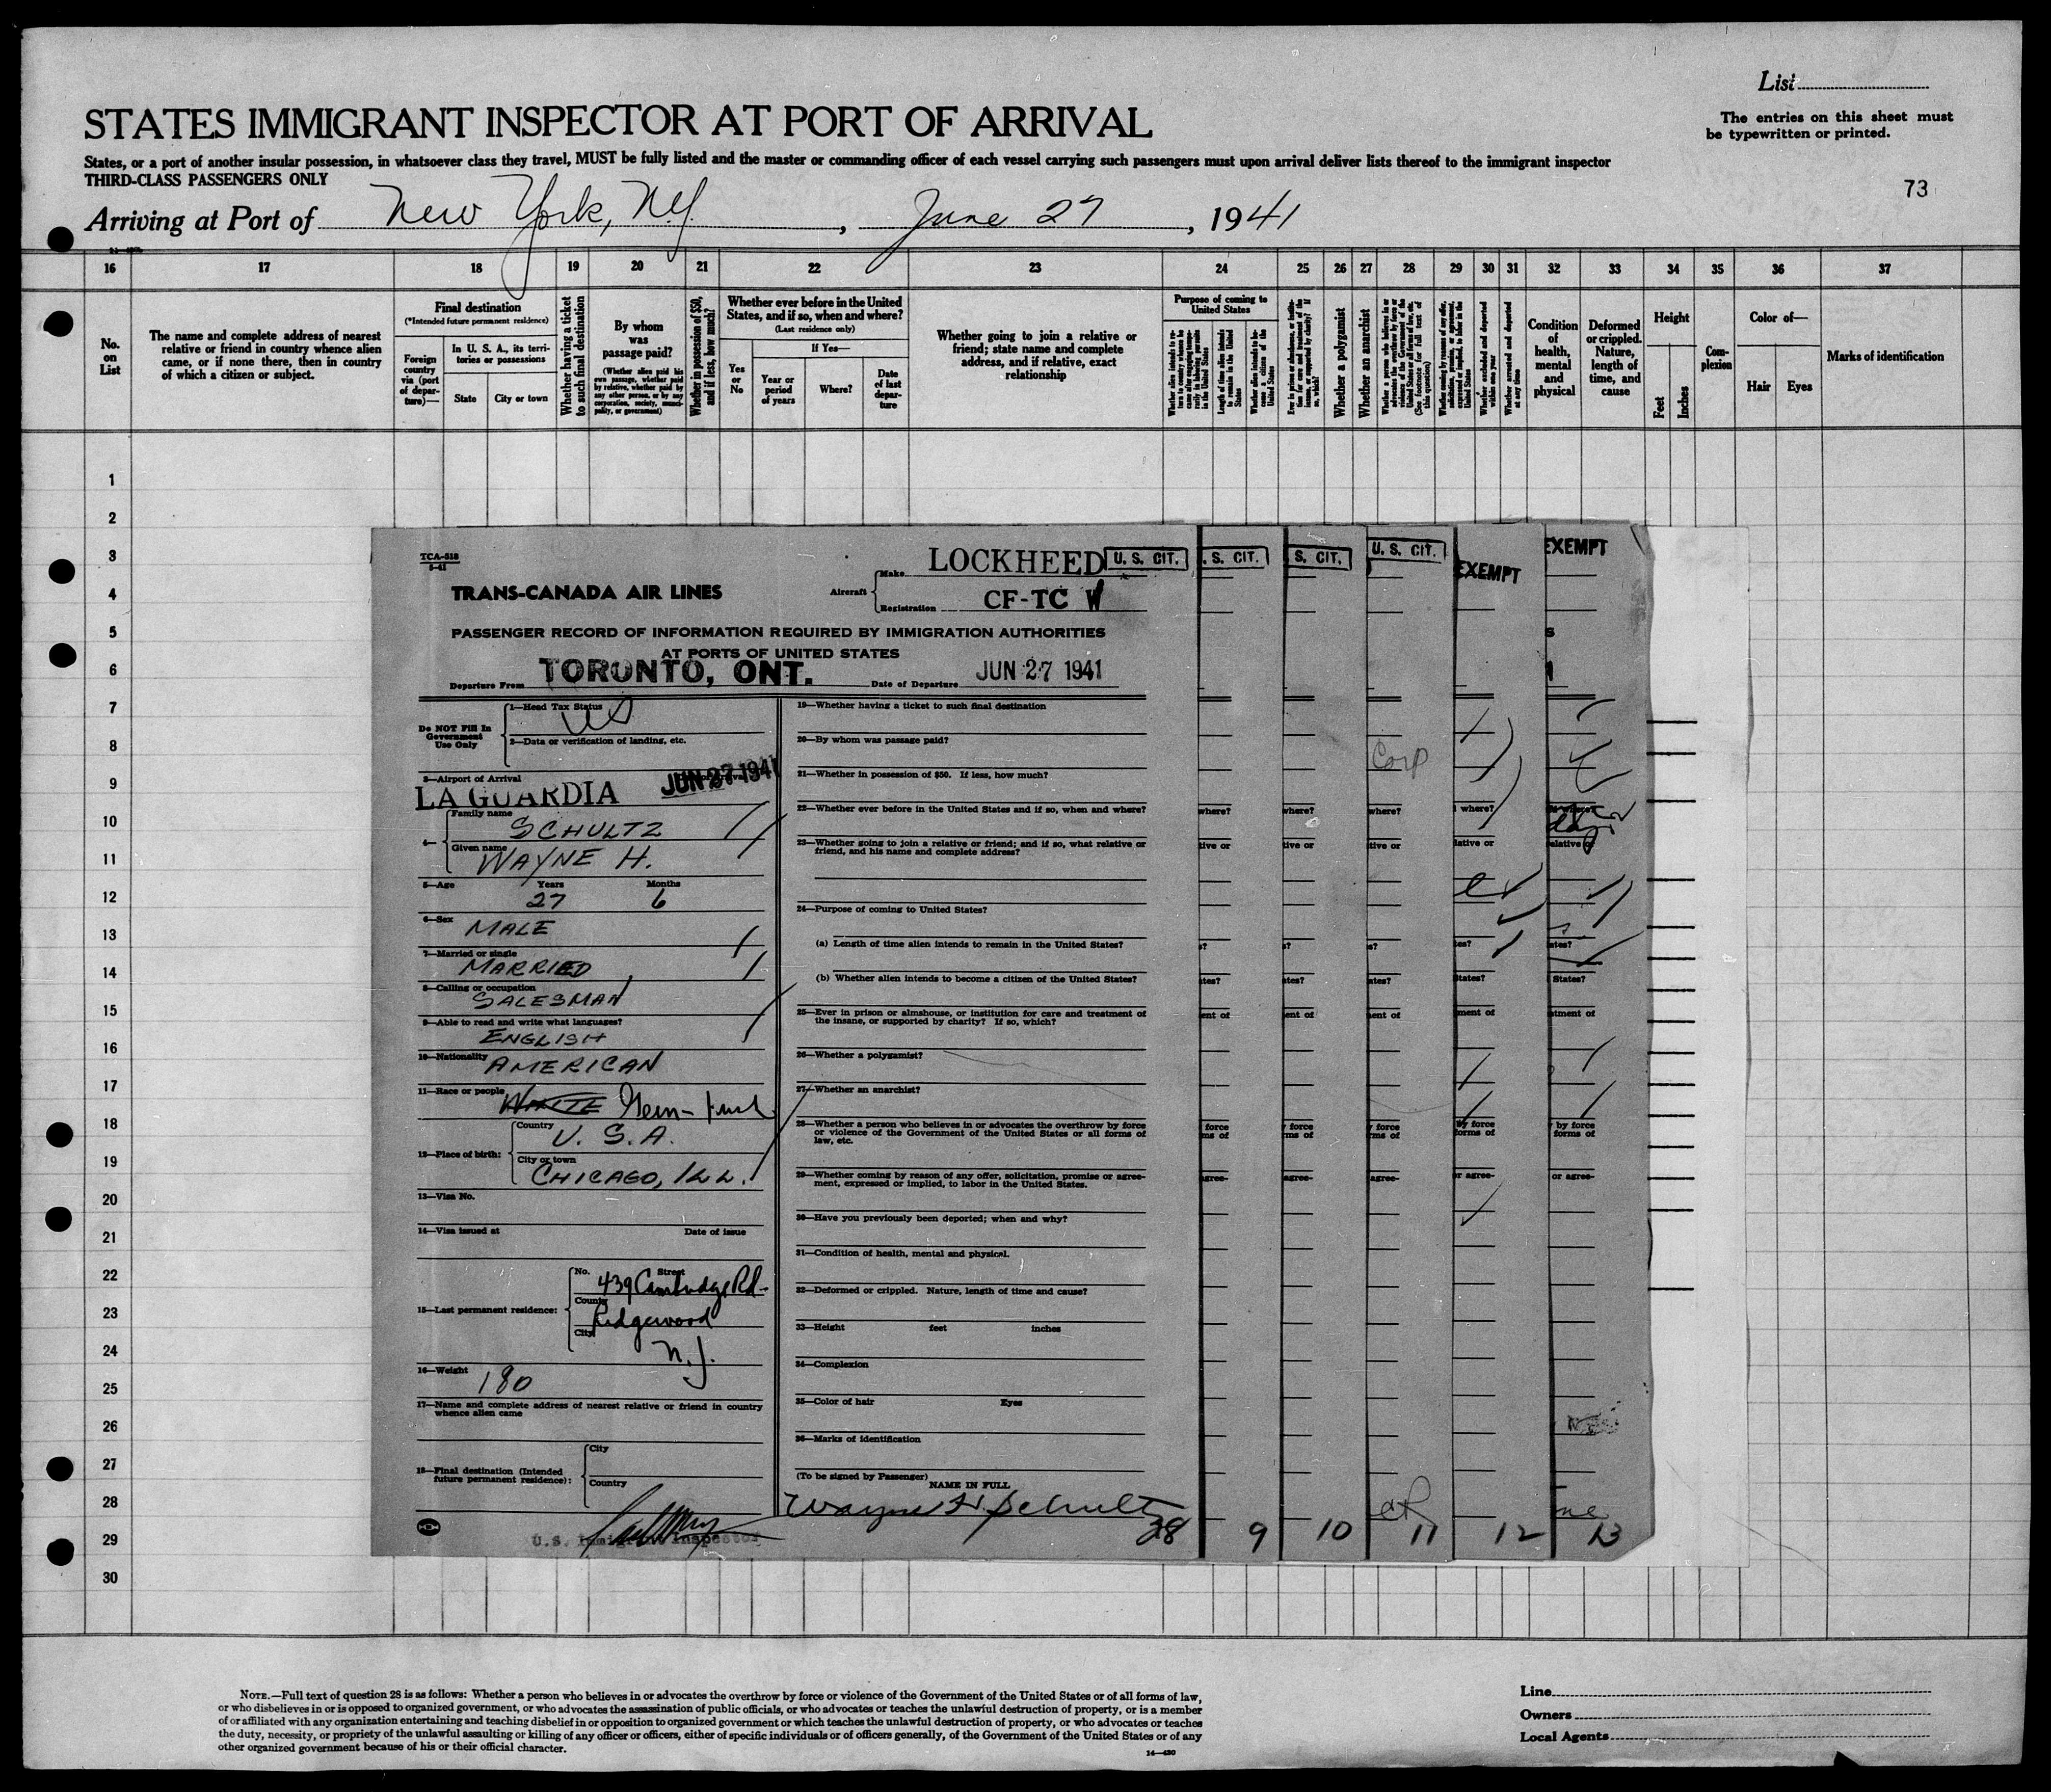 List
STATES IMMIGRANT INSPECTOR AT PORT OF ARRIVAL
The entries on this sheet must
be typewritten or printed.
States, or a port of another insular possession, in whatsoever class they travel, MUST be fully listed and the master or commanding officer of each vessel carrying such passengers must upon arrival deliver lists thereof to the immigrant inspector
THIRD-CLASS PASSENGERS ONLY
73
Arriving at Port of New York, N.Y., June 27, 1941
16 17 18 19 20 21 22 23 24 25 26 27 28 29 30 31 32 33 34 35 36 37
No. on List
The name and complete address of nearest
relative or friend in country whence alien
came, or if none there, then in country
of which a citizen or subject.
Final destination
(*Intended future permanent residence)
Foreign country via (port of departure)—
In U. S. A., its territories or possessions
State
City or town
Whether having a ticket to such final destination
By whom was passage paid?
(Whether alien paid his own passage, whether paid by relative, whether paid by any other person, or by any corporation, society, municipality, or government)
Whether in possession of $50, and if less, how much?
Whether ever before in the United States, and if so, when and where?
(Last residence only)
Yes or No
If Yes—
Year or period of years
Where?
Date of last departure
Whether going to join a relative or
friend; state name and complete
address, and if relative, exact
relationship
Purpose of coming to United States
Length of time alien intends to remain in the United States
Whether alien intends to become a citizen of the United States
Whether a polygamist
Whether an anarchist
Whether excluded and deported within one year
Whether arrested and deported at any time
Condition of health, mental and physical
Deformed or crippled. Nature, length of time, and cause
Height
Feet
Inches
Complexion
Color of—
Hair
Eyes
Marks of identification
1
2
3
4
5
6
7
8
9
10
11
12
13
14
15
16
17
18
19
20
21
22
23
24
25
26
27
28
29
30
TCA-518
5-41
TRANS-CANADA AIR LINES
Aircraft
Make LOCKHEED
Registration CF-TC W
U. S. CIT.
S. CIT.
S. CIT.
U. S. CIT.
EXEMPT
EXEMPT
PASSENGER RECORD OF INFORMATION REQUIRED BY IMMIGRATION AUTHORITIES
AT PORTS OF UNITED STATES
Departure From TORONTO, ONT. Date of Departure JUN 27 1941
Do NOT Fill In Government Use Only
1—Head Tax Status
2—Data or verification of landing, etc.
3—Airport of Arrival
LA GUARDIA JUN 27 1941
4—
Family name SCHULTZ
Given name WAYNE H.
5—Age Years 27 Months 6
6—Sex MALE
7—Married or single MARRIED
8—Calling or occupation SALESMAN
9—Able to read and write what languages? ENGLISH
10—Nationality AMERICAN
11—Race or people WHITE Germ-
12—Place of birth:
Country U. S. A.
City or town CHICAGO, ILL.
13—Visa No.
14—Visa issued at Date of issue
15—Last permanent residence:
No. Street 439 Cambridge Rd-
County Ridgewood
City N.J.
16—Weight 180
17—Name and complete address of nearest relative or friend in country
whence alien came
18—Final destination (Intended
future permanent residence):
City
Country
U.S. Immigrant Inspector
19—Whether having a ticket to such final destination
20—By whom was passage paid?
Corp
21—Whether in possession of $50. If less, how much?
22—Whether ever before in the United States and if so, when and where?
where?
where?
where?
where?
23—Whether going to join a relative or friend; and if so, what relative or
friend, and his name and complete address?
24—Purpose of coming to United States?
(a) Length of time alien intends to remain in the United States?
(b) Whether alien intends to become a citizen of the United States?
25—Ever in prison or almshouse, or institution for care and treatment of
the insane, or supported by charity? If so, which?
26—Whether a polygamist?
27—Whether an anarchist?
28—Whether a person who believes in or advocates the overthrow by force
or violence of the Government of the United States or all forms of
law, etc.
29—Whether coming by reason of any offer, solicitation, promise or agree-
ment, expressed or implied, to labor in the United States.
30—Have you previously been deported; when and why?
31—Condition of health, mental and physical.
32—Deformed or crippled. Nature, length of time and cause?
33—Height feet inches
34—Complexion
35—Color of hair Eyes
36—Marks of identification
(To be signed by Passenger)
NAME IN FULL
Wayne H Schultz
9 10 11 12 13
NOTE.—Full text of question 28 is as follows: Whether a person who believes in or advocates the overthrow by force or violence of the Government of the United States or of all forms of law,
or who disbelieves in or is opposed to organized government, or who advocates the assassination of public officials, or who advocates or teaches the unlawful destruction of property, or is a member
of or affiliated with any organization entertaining and teaching disbelief in or opposition to organized government or which teaches the unlawful destruction of property, or who advocates or teaches
the duty, necessity, or propriety of the unlawful assaulting or killing of any officer or officers, either of specific individuals or of officers generally, of the Government of the United States or of any
other organized government because of his or their official character.
14—430
Line
Owners
Local Agents